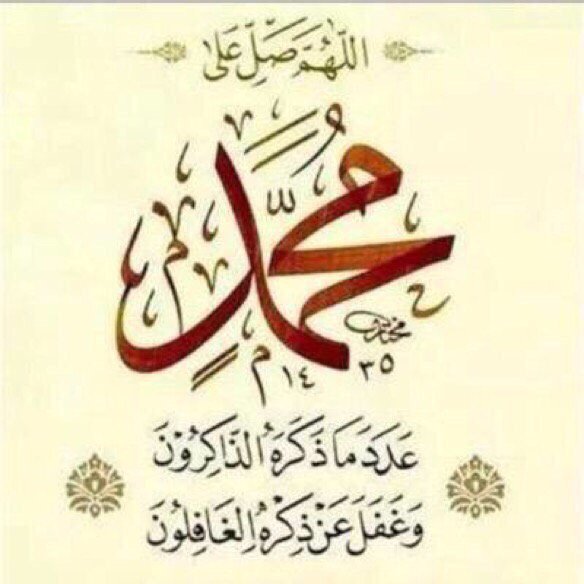 اللّٰهُمَّ صَلِّ عَلَى
مُحَمَّدٍ
١٤٣٥
عَدَدَ مَا ذَكَرَهُ الذَّاكِرُوْنَ
وَغَفَلَ عَنْ ذِكْرِهِ الغَافِلُوْنَ